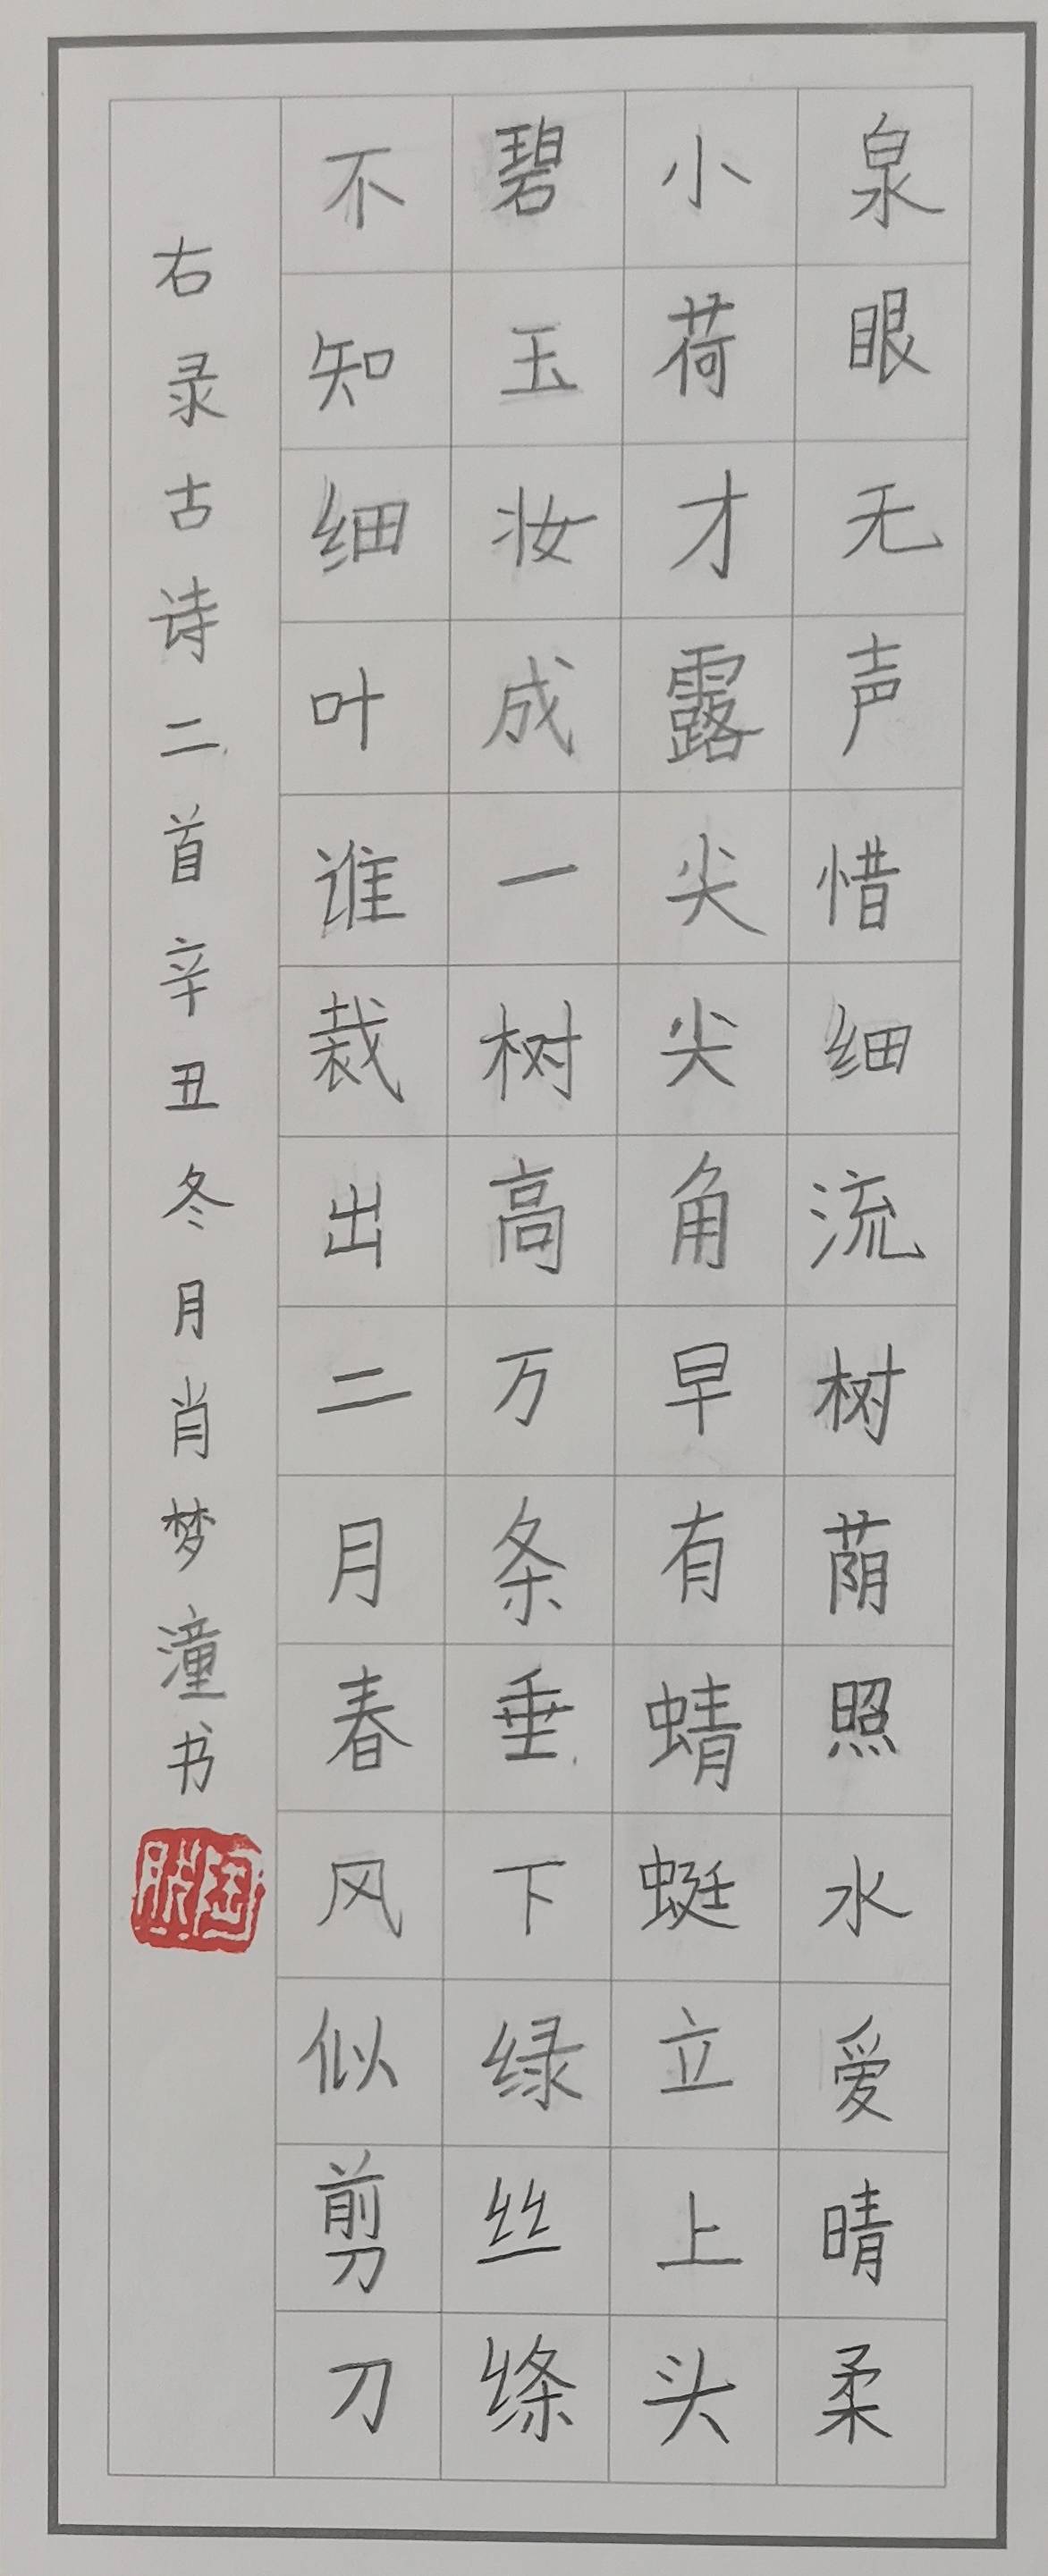 泉眼无声惜细流树荫照水爱晴柔
小荷才露尖尖角早有蜻蜓立上头
碧玉妆成一树高万条垂下绿丝绦
不知细叶谁裁出二月春风似剪刀
右录古诗二首辛丑冬月肖梦潼书